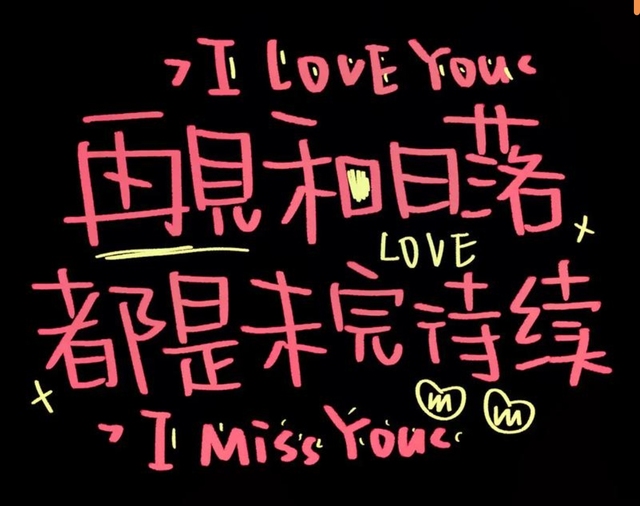 I LOVE You
再見和日落
LOVE
都是未完待续
I Miss You